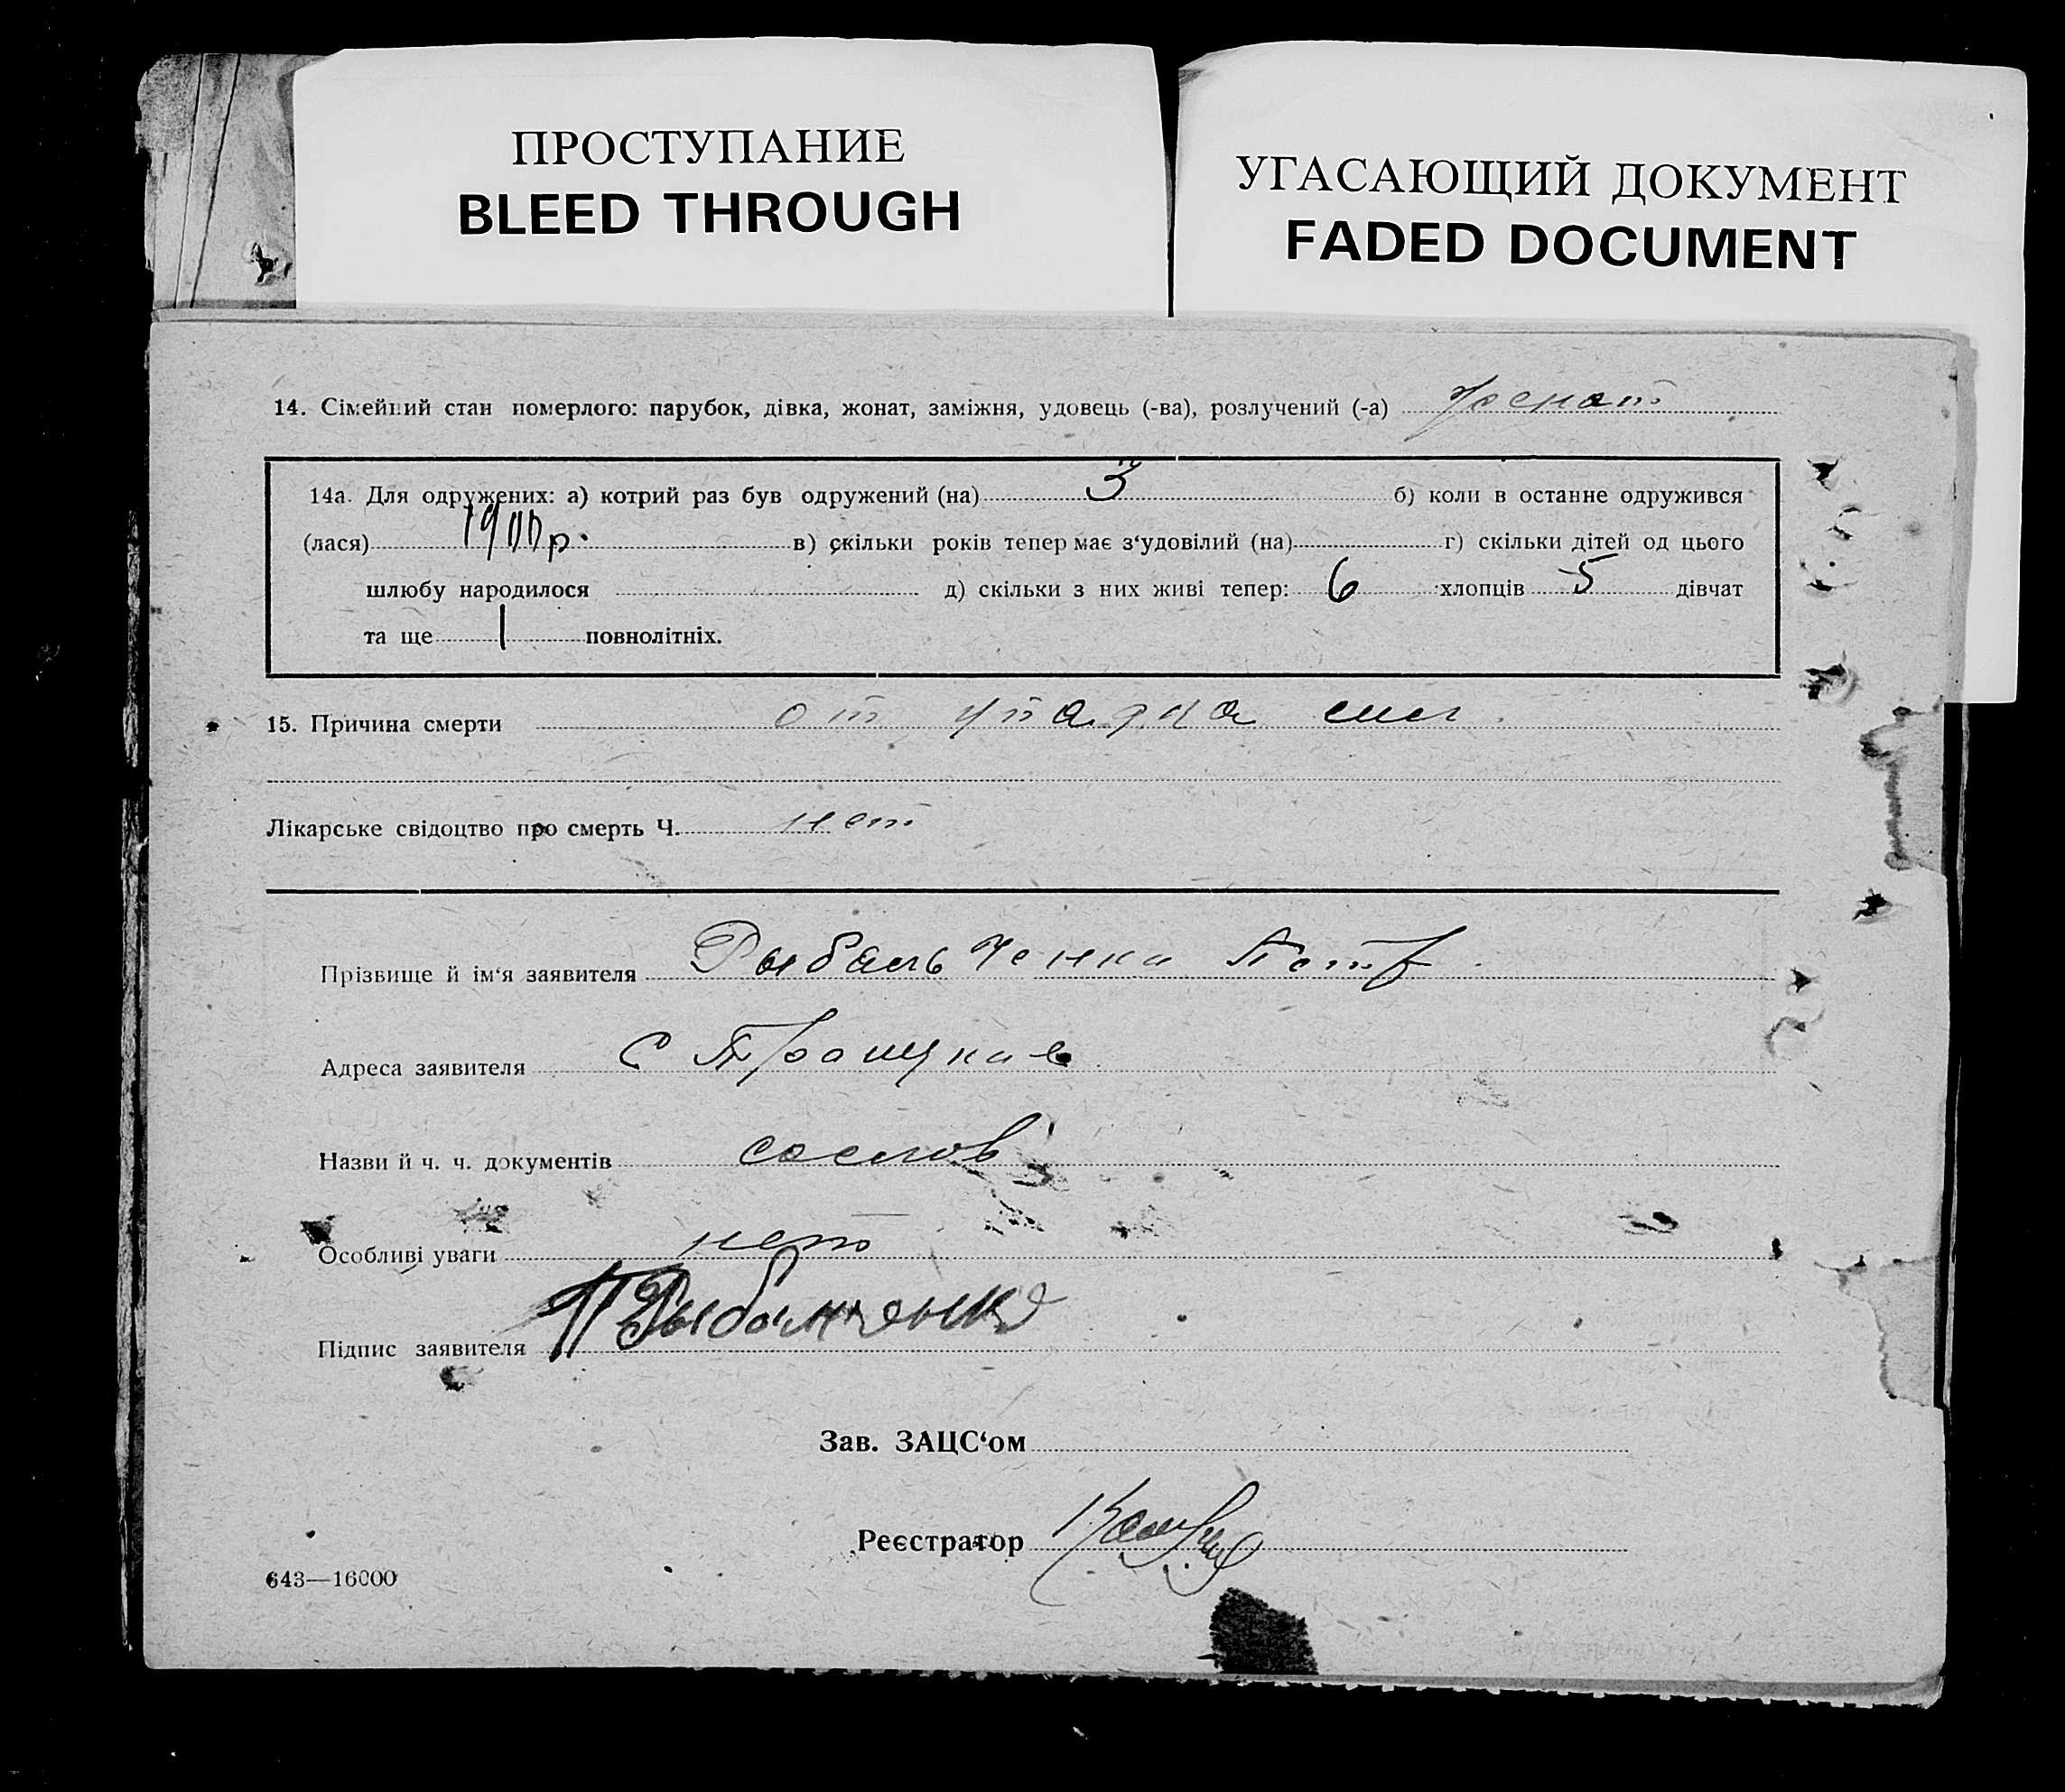 ПРОСТУПАНИЕ
BLEED THROUGH
УГАСАЮЩИЙ ДОКУМЕНТ
FADED DOCUMENT
14. Сімейний стан померлого: парубок, дівка, жонат, заміжня, удовець (-ва), розлучений (-а) Жонат
14а. Для одружених: а) котрий раз був одружений (на) 3 б) коли в останне одружився
(лася) 1900 р. в) скільки років тепер має з‘удовілий (на) г) скільки дітей од цього
шлюбу народилося д) скільки з них живі тепер: 6 хлопців 5 дівчат
та ще 1 повнолітніх.
15. Причина смерти от упадка сил.
Лікарське свідоцтво про смерть Ч. нет
Прізвище й ім‘я заявителя Рыбальченко Петр
Адреса заявителя с
Назви й ч. ч. документів со слов
Особливі уваги нет
Підпис заявителя П Рыбальченко
Зав. ЗАЦС‘ом
Реєстратор
643—16000